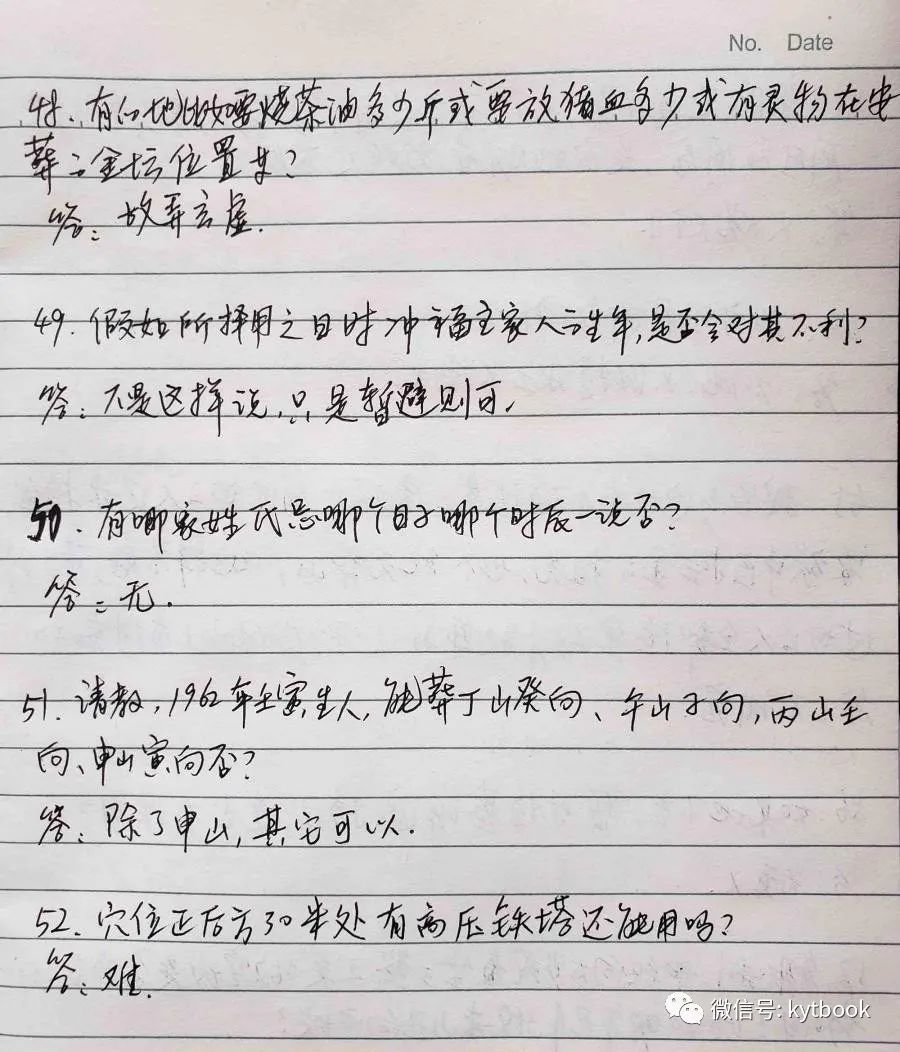 No. Date
48、有的地比如要烧茶油多少斤或要放猪血多少或有灵物在安
葬之金坛位置等?
答:故弄玄虚.
49.假如所择用之日时冲福主家人之生年,是否会对其不利?
答:不是这样说,只是暂避则可.
50.有哪家姓氏忌哪个日子哪个时辰一说否?
答:无.
51.请教,1962年壬寅生人,能葬丁山癸向、午山子向,丙山壬
向、申山寅向否?
答:除了申山,其它可以.
52.穴位正后方30米处有高压铁塔还能用吗?
答:难.
微信号: kytbook